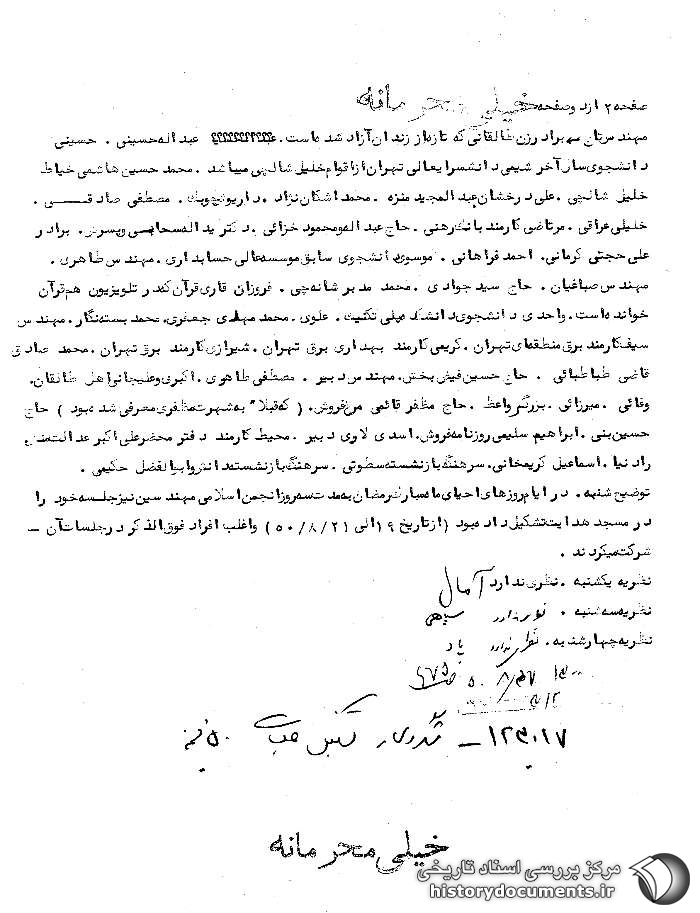 خیلی محرمانه
صفحه ۲ از دو صفحه
مهندس تاج سه برادرزن طالقانی که تازه از زندان آزاد شده است. عبداله حسینی . حسینی
دانشجوی سال آخر شیمی دانشسرایعالی تهران از اقوام خلیل شالچی میباشد . محمد حسین هاشمی خیاط
خلیل شالچی . علی درخشان عبدالمجید منزه . محمد اشکان نژاد . داریونچ ویك . مصطفی صادقی .
خلیلی عراقی . مرتاضی کارمند بانك رهنی . حاج عبداله و محمود خزائی . دکتر یداله سحابی و پسرش . برادر
علی حجتی کرمانی. احمد فراهانی . موسوی دانشجوی سابق موسسه عالی حسابداری . مهندس طاهری .
مهندس صباغیان . حاج سید جوادی . محمد مدیر شانه چی . فروزان قاری قرآن که در تلویزیون هم قرآن
خوانده است. واحدی دانشجوی دانشکده پلی تکنیک . علوی . محمد مهدی جعفری. محمد بسته نگار. مهندس
سیف کارمند برق منطقه ای تهران . کریمی کارمند بهداری برق تهران . شیرازی کارمند برق تهران . محمد صادق
قاضی طباطبائی . حاج حسین فیض بخش. مهندس دبیر . مصطفی طاهری . اکبری و علیجانو اهل طالقان.
وفائی . میرزائی . بزرگر واعظ . حاج مظفر قائمی مرغ فروش. ( که قبلا" به شهرت مظفری معرفی شده بود ) حاج
حسین بنی . ابراهیم سلیمی روزنامه فروش. اسدی لاری دبیر . محیط کارمند دفتر محضر علی اکبر عدالتمند
رادنیا . اسماعیل کریمخانی. سرهنگ بازنشسته سطوتی . سرهنگ بازنشسته انشر و ابوالفضل حکیمی .
توضیح شنبه . در ایام روزهای احیای ماه مبارك رمضان به مدت سه روز انجمن اسلامی مهندسین نیز جلسه خود را
در مسجد هدایت تشکیل داده بود (از تاریخ ۱۹ الی ۵۰/۸/۲۱) و اغلب افراد فوق الذکر در جلسات آن -
شرکت میکردند .
نظریه یکشنبه . نظری ندارد آمال
نظریه سه شنبه . نظری ندارد سپهی
نظریه چهارشنبه . نظری ندارد
خیلی محرمانه
مرکز بررسی اسناد تاریخی
historydocuments.ir